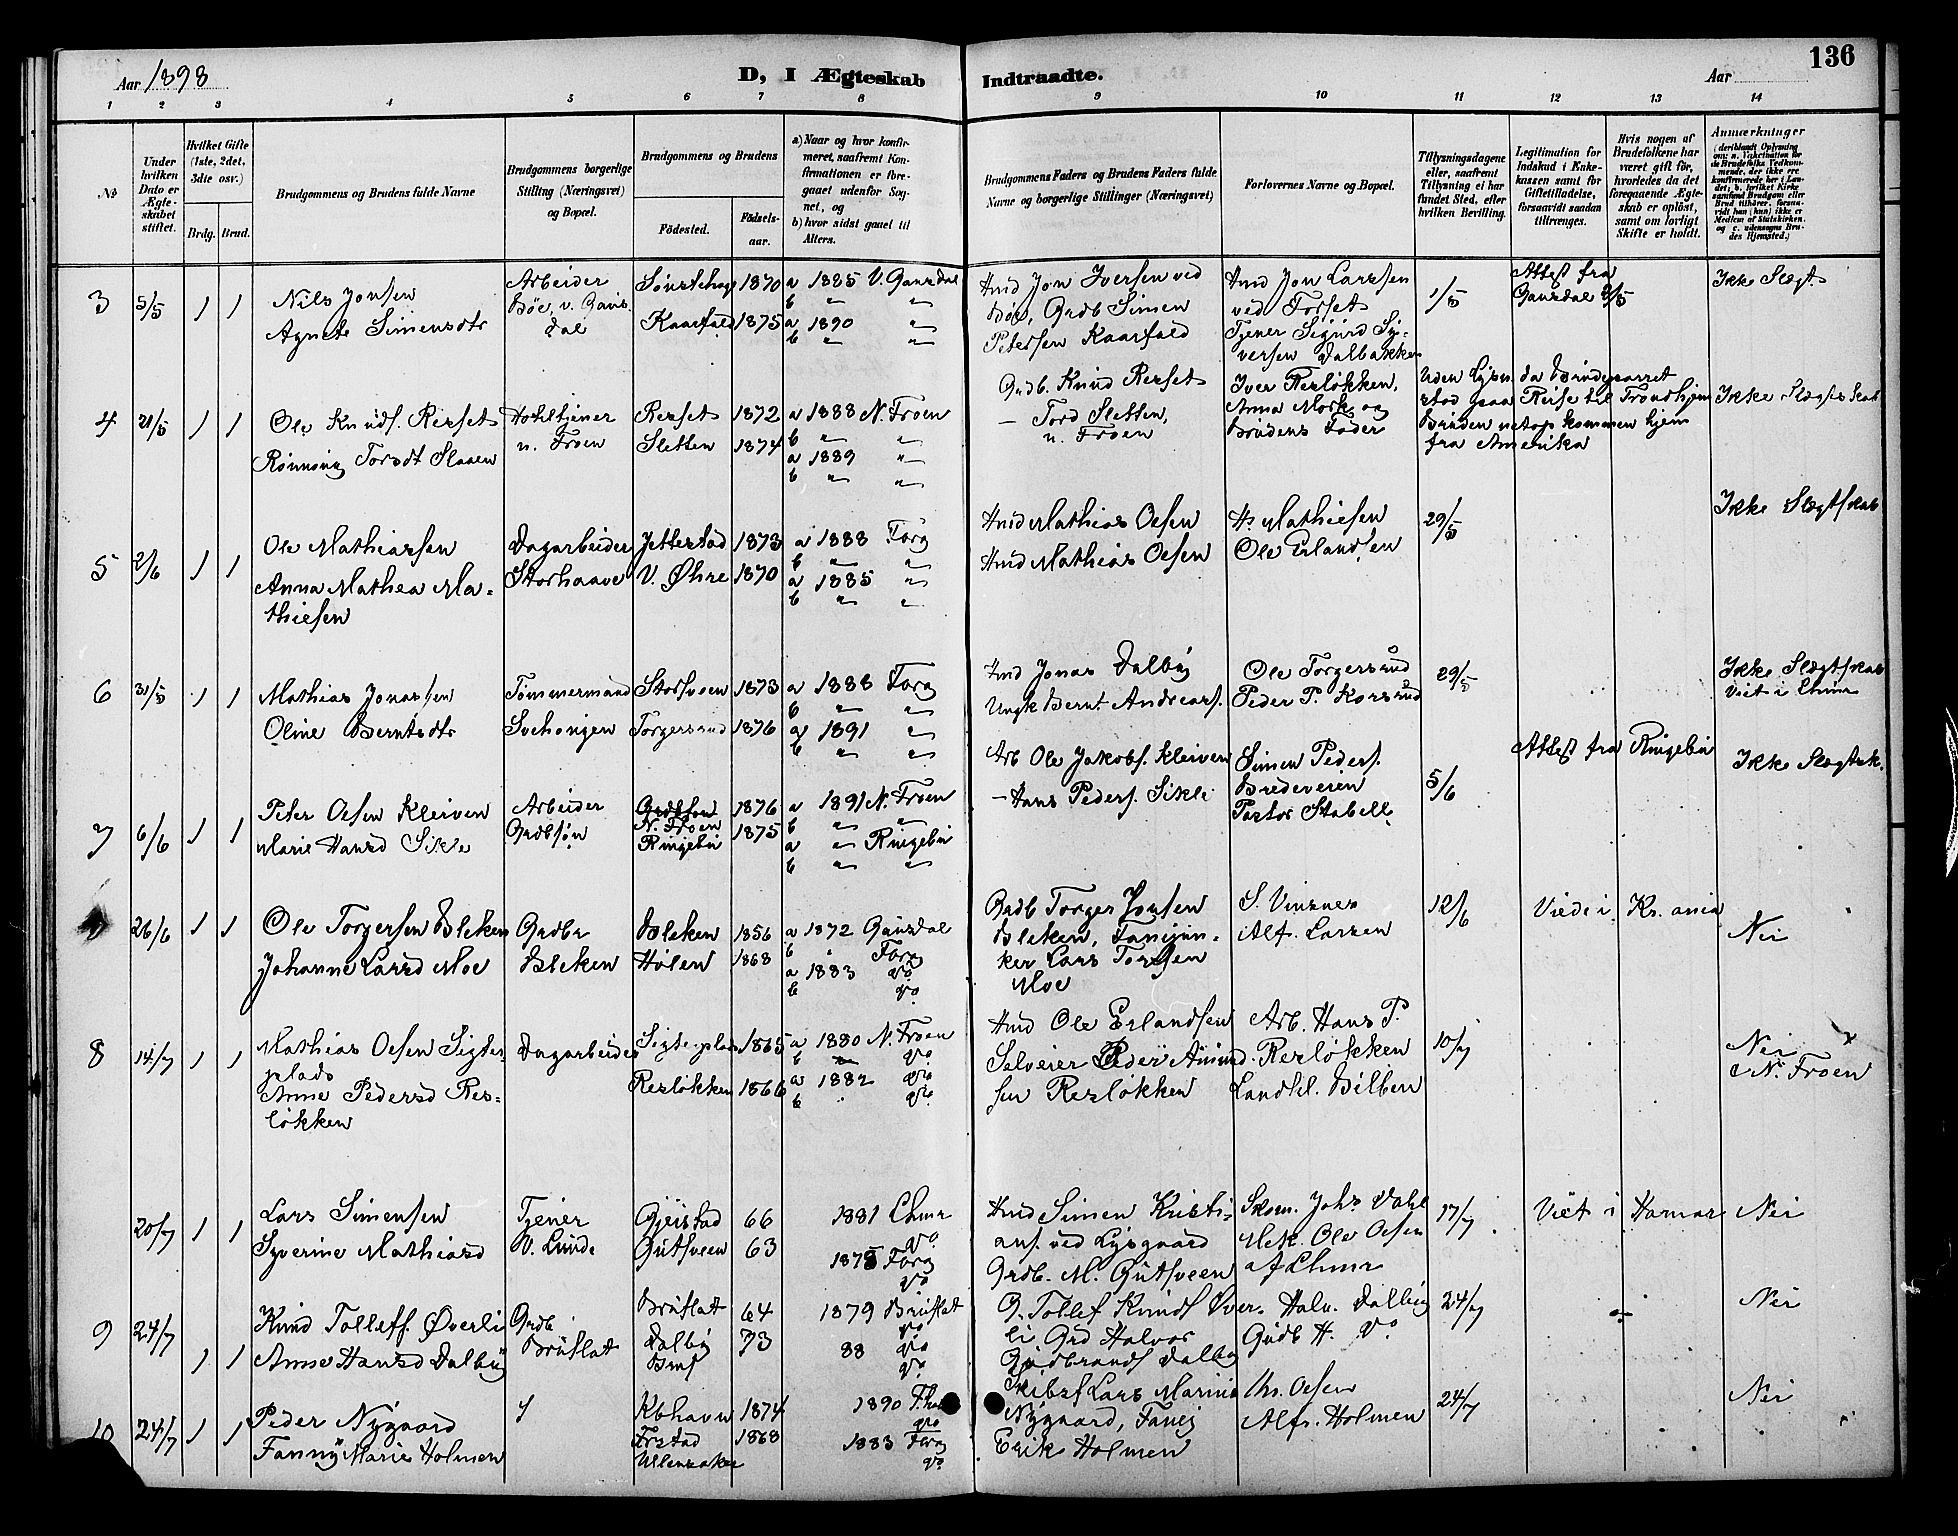 Aar 1898
D, I Ægteskab
Indtraadte.
Aar
136
1 2 3 4 5 6 7 8 9 10 11 12 13 14
No
Under hvilken Dato er Ægteskabet stiftet.
Hvilket Gifte (1ste, 2det, 3die osv.)
Brdg. Brud.
Brudgommens og Brudens fulde Navne
Brudgommens borgerlige Stilling (Næringsvei) og Bopæl.
Brudgommens og Brudens
Fødested.
Fødselsaar.
a) Naar og hvor konfirmeret, saafremt Konfirmationen er foregaaet udenfor Sognet, og
b) hvor sidst gaaet til Alters.
Brudgommens Faders og Brudens Faders fulde Navne og borgerlige Stillinger (Næringsvei)
Forlovernes Navne og Bopæl.
Tillysningsdagene eller, saafremt Tillysning ei har fundet Sted, efter hvilken Bevilling.
Legitimation for Indskud i Enkekassen samt for Giftetilladelse, forsaavidt saadan tiltrænges.
Hvis nogen af Brudefolkene har været gift før, hvorledes da det foregaaende Ægteskab er opløst, samt om lovligt Skifte er holdt.
Anmærkninger
3 5/5 1 1
Nils Jonsen
Agnete Simensdtr
Arbeider
Bøe, v. Gausdal
1870
Kaarfald 1875
a 1885 V. Gausdal
b " "
a 1890 "
b " "
Hmd Jon Iversen ved
Bøe, Grdb Simen
Petersen Kaarfald
Hmd Jon Larssen
ved Forset
Tjener Sigurd Syversen Dalbakken
1/5
Attest fra
Gausdal 2/5
Ikke Slegt.
4 21/5 1 1
Ole Knuds. Rerset
Rønnoug Torsdt Slaaen
Hoteltjener
n. Froen
Rerset 1872
Sletten 1874
a 1888 N. Froen
b " "
a 1889 "
b " "
Grdb. Knud Rerset
— Tord Sletten,
n. Froen
Iver Resløkken,
Anna Mork og
Brudens Fader
Uden Lysn. da Brudeparret
stod paa Reise til Trondhjem
Bruden netop kommen hjem
fra Amerika
Ikke Slegtskab
5 2/6 1 1
Ole Mathiassen
Anna Mathea Mathiesen
Dagarbeider
Storhaave
Jetterstad 1873
V. Øhre 1870
a 1888 Forg
b " "
a 1885 "
b " "
Hmd Mathias Olsen
Hmd Mathias Olsen
H. Mathiesen
Ole Erlandsen
29/5
Ikke Slegtskab
6 31/5 1 1
Mathias Jonassen
Oline Berntsdtr
Tømmermand
Storsveen 1873
Torgersrud 1876
a 1888 Forg
b " "
a 1891 "
b " "
Hmd Jonas Dalby
Ungk Bernt Andreass.
Ole Torgersrud
Peder P. Korsrud
29/5
Ikke Slegtskab
Viet i Lhmr
7 6/6 1 1
Peter Olsen Kleiven
Marie Hansd Sikle
Arbeider
Grdbsøn
N. Froen 1876
Ringebu 1875
a 1891 N. Froen
b " "
a " Ringebu
b " "
Arb Ole Jakobs. Kleiven
— Hans Peders. Sikle
Simen Peders.
Bredeveien
Pastor Stabell.
5/6
Attest fra Ringebu
Ikke Slegtsk.
26/6 1 1
Ole Torgersen Bleken
Johanne Larsd Moe
Grdbr
Bleken
Bleken 1856
Holen 1868
a 1872 Gausdal
b Forg
a 1883 do
b do
Grdb Torger Jonsen
Bleken, Fanejunker Lars Torsen
Moe
S. Vinsnes
Alf. Larsen
12/6
Viede i Kr.ania
Nei
8 14/7 1 1
Mathias Olsen Sigterplads
Anne Pedersd Resløkken
Dagarbeider
Sigte.plads 1865
Resløkken 1866
a 1880 N. Froen
b do
a 1882 do
b do
Hmd Ole Erlandsen
Selveier Peder Amundsen Resløkken
Arb. Hans P.
Resløkken
Landhl. Bilben
10/7
Nei
N. Froen
20/7 1 1
Lars Simensen
Syverine Mathiasd
Tjener
V. Lunde
Gjeistad 66
Gutsveen 63
1881 Lhmr
do
1878 Forg
do
Hmd Simen Kristians. ved Lysgaard
Grdb. M. Gutsveen
Skom. Johs Dahl
Mek. Ole Olsen
af Lhmr
17/7
Viet i Hamar
Nei
9 24/7 1 1
Knud Tolleff. Øverli
Anne Hansd Dalby
Grdb
Bruflat
Bruflat 64
Dalby 73
1879 Bruflat
do
88 do
do
G. Tollef Knuds Øverli Grd Halvor
Gudbrands Dalby
Halv. Dalby
Gudb H. do
24/7
Nei
10 24/7 1 1
Peder Nygaard
Fanny Marie Holmen
Kbhavn 1874
1868
Ullensaker
1890
do
1883 Forg
do
Lars Marius
Nygaard, Fanej
Erik Holmen
Chr. Olsen
Alfr. Holmen
24/7
Nei